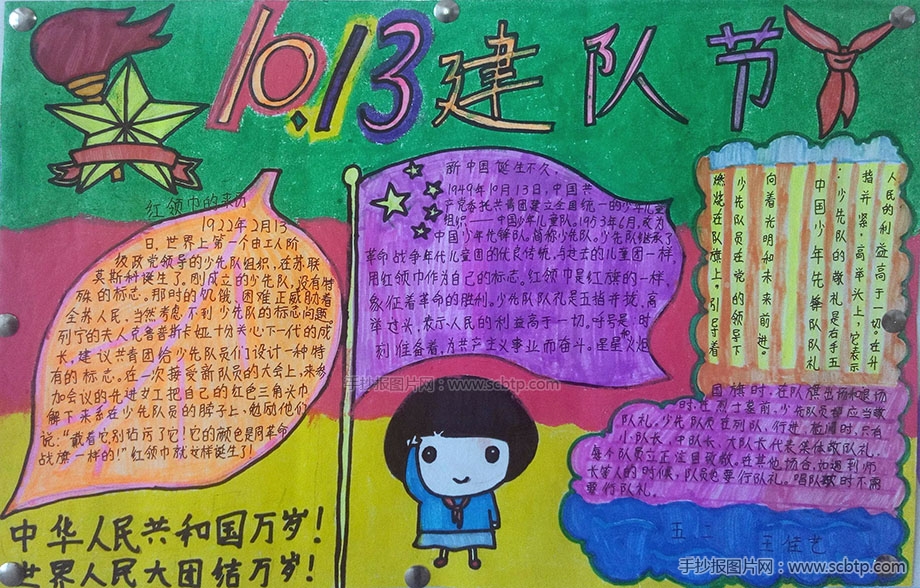 10.13建队节
红领巾的来历
1922年2月13
日,世界上第一个由工人阶
级政党领导的少先队组织,在苏联
莫斯科诞生了。刚成立的少先队,没有特
殊的标志。那时的饥饿、困难正威胁着
全苏人民,当然考虑不到少先队的标志问题
列宁的夫人克鲁普斯卡娅十分关心下一代的成
长,建议共青团给少先队员们设计一种特
有的标志。在一次接受新队员的大会上,来参
加会议的先进女工把自己的红色三角头巾
解下来系在少先队员的脖子上,勉励他们
说:“戴着它,别玷污了它!它的颜色是同革命
战旗一样的!”红领巾就这样诞生了!
新中国诞生不久,
1949年10月13日,中国共
产党委托共青团建立全国统一的少年儿童
组织——中国少年儿童队。1953年6月,改为
中国少年先锋队。简称少先队。少先队继承了
革命战争年代儿童团的优良传统,与过去的儿童团一样
用红领巾作为自己的标志。红领巾是红旗的一样,
象征着革命的胜利。少先队队礼是五指并拢,高
举过头,表示人民的利益高于一切。呼号是:时
刻准备着,为共产主义事业而奋斗。星星火炬
燃烧在队旗上,引导着
少先队员在党的领导下
向着光明和未来前进。
中国少年先锋队队礼
:少先队的敬礼是右手五
指并紧,高举头上,它表示
人民的利益高于一切。在升
国旗时,在队旗出场和退场
时,在烈士墓前,少先队员都应当敬
队礼。少先队员在列队、行进、检阅时,只有
小队长、中队长、大队长代表集体敬队礼,
每个队员立正注目致敬。在其他场合,如遇到师
长、客人的时候,队员也要行队礼。唱队歌时不需
要行队礼。
五二 王佳艺
中华人民共和国万岁!
世界人民大团结万岁!
手抄报图片网:www.scbtp.com
手抄报图片网:www.scbtp.com